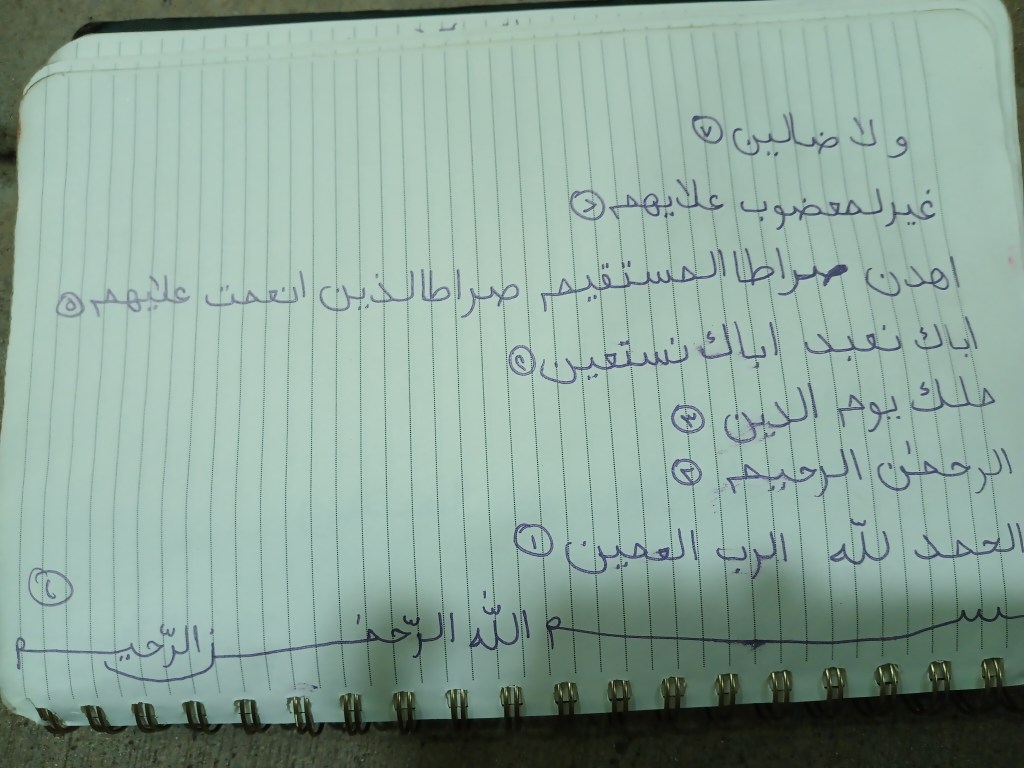 و لا ضالين ٧
غير لمعضوب علايهم ٦
اهدن صراطا المستقيم صراطا الذين انعمت علايهم ٥
اباك نعبد اباك نستعين
ملك يوم الدين ٣
الرحمٰن الرحيم ٢
الحمد للّه الرب العمين ١
بسم اللّه الرّحمٰن الرّحيم